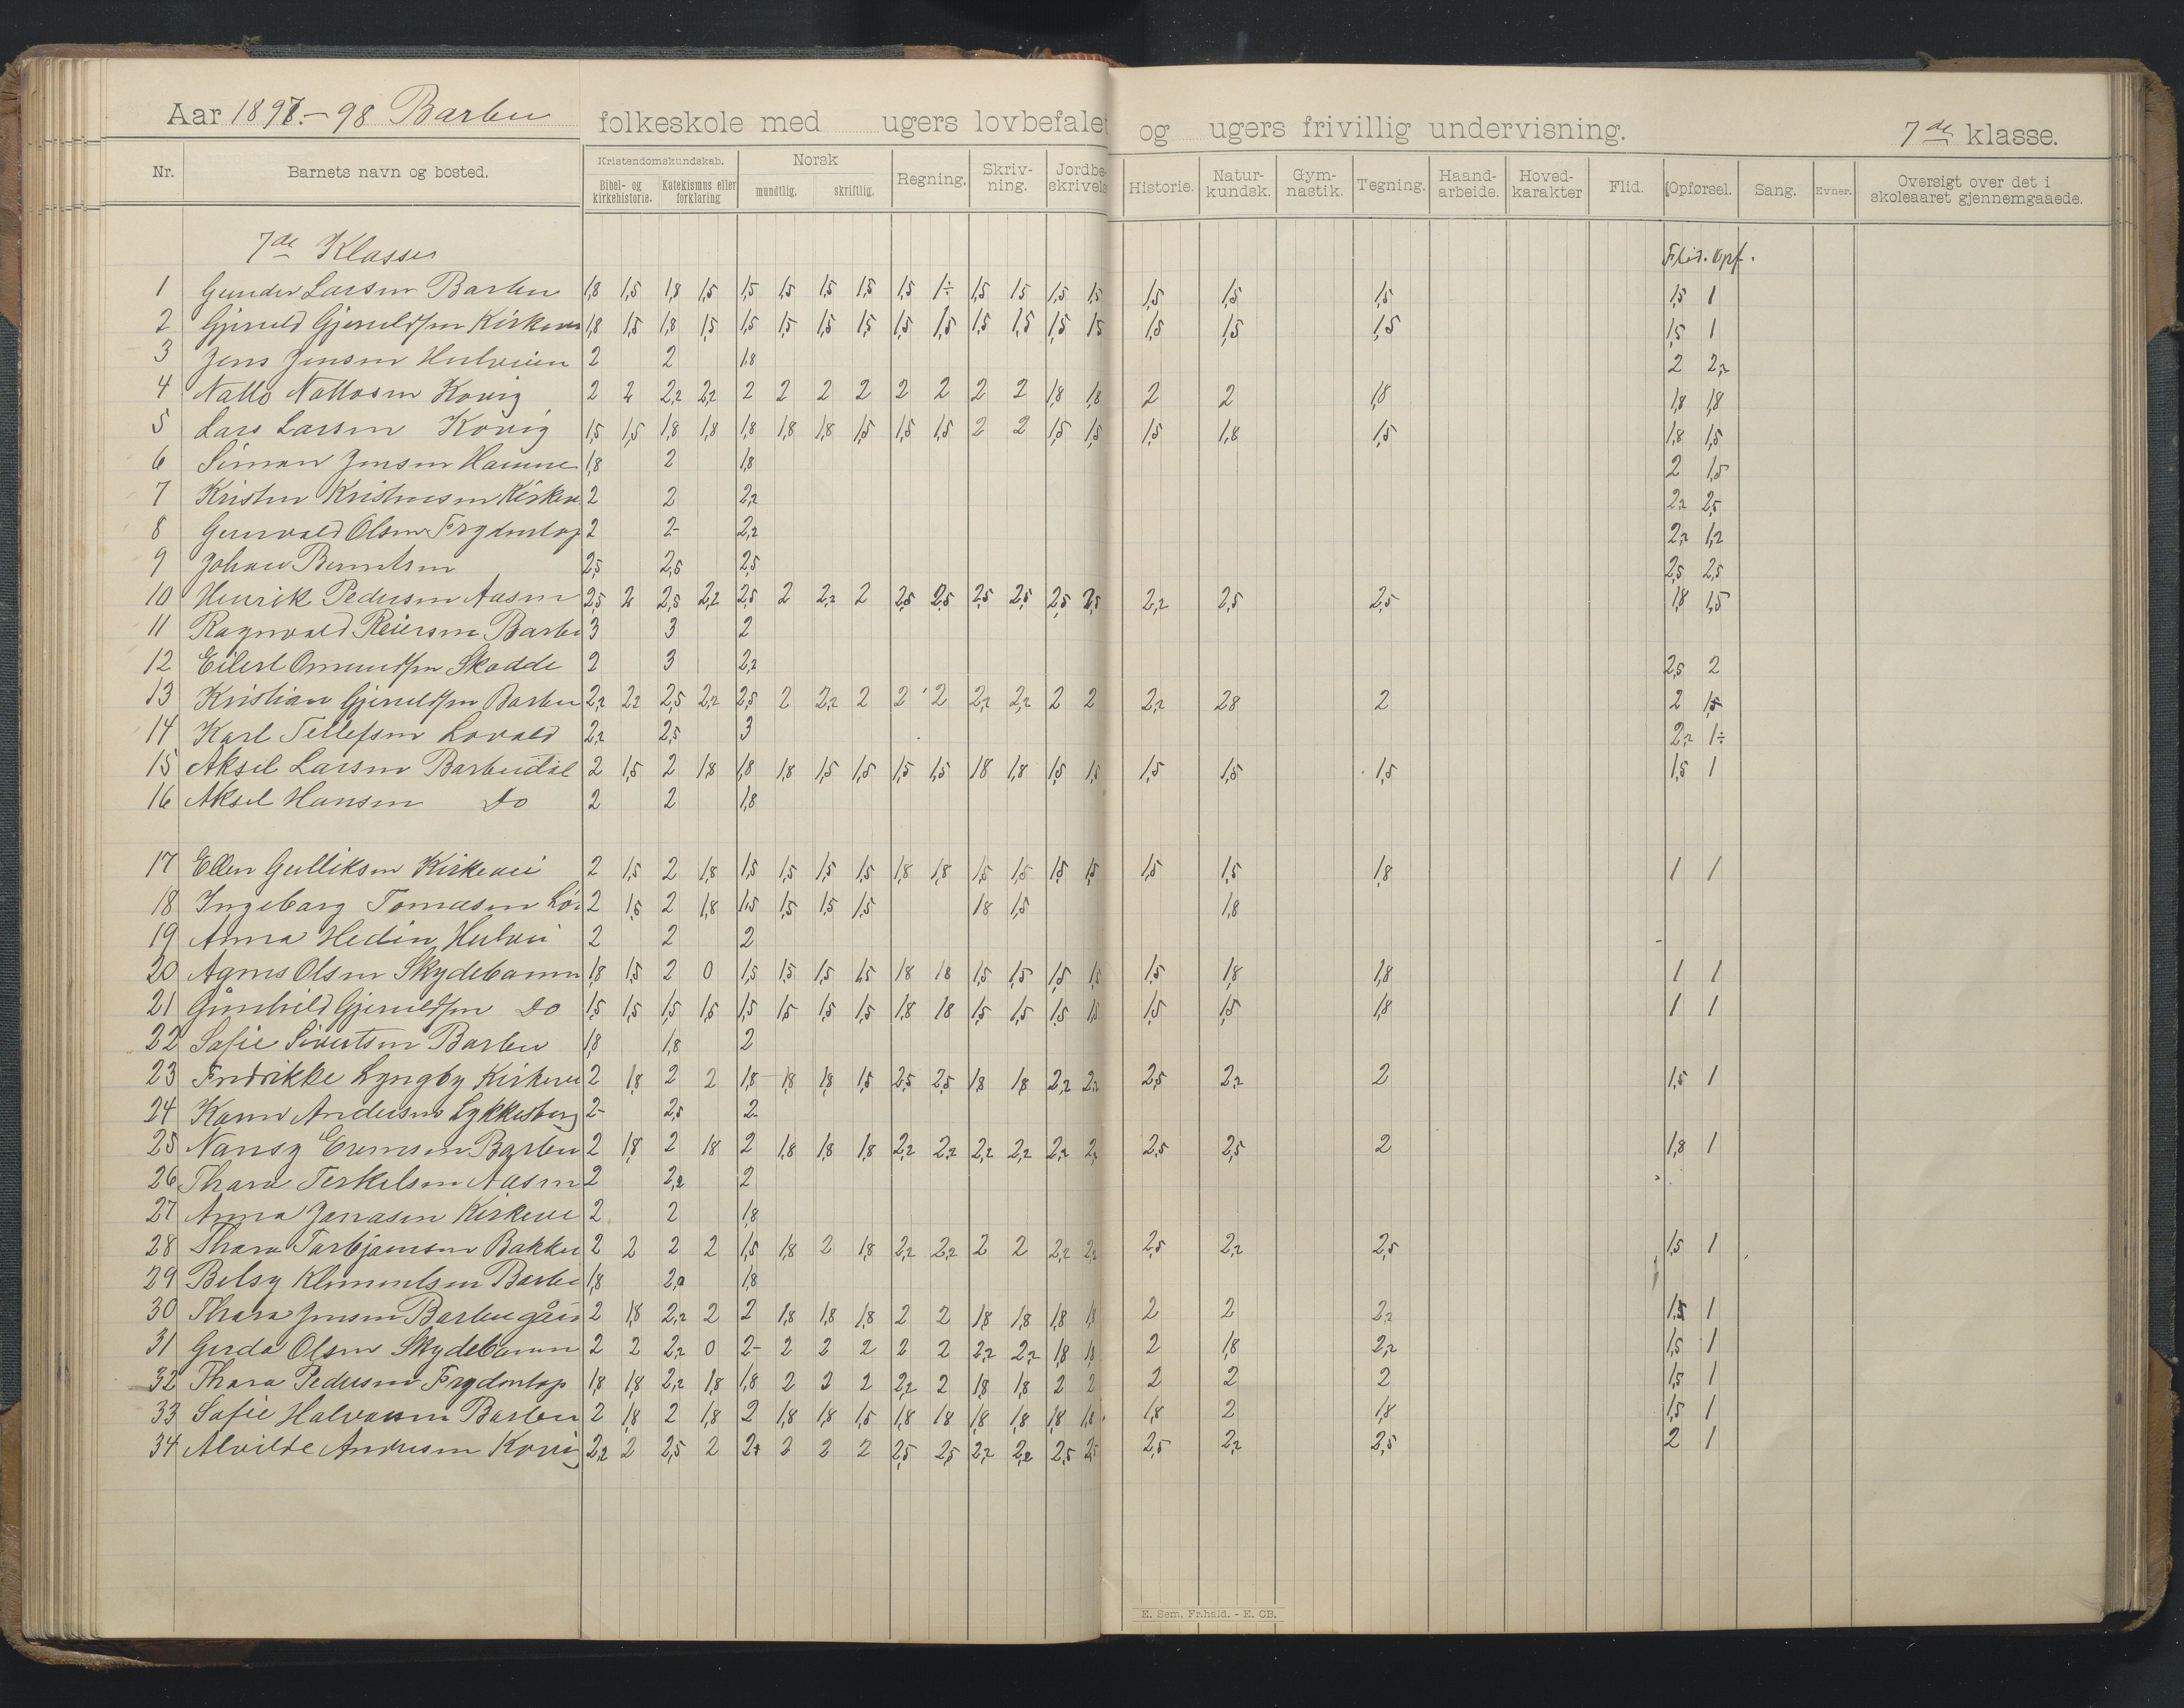 Aar 1897.-98 Barbu folkeskole med ugers lovbefalet og ugers frivillig undervisning. 7de klasse.
Nr. Barnets navn og bosted. Kristendomskundskab. Norsk Regning. Skriv- ning. Jordbe- skrivels Historie. Natur- kundsk. Gym- nastik. Tegning. Haand- arbeide. Hoved- karakter Flid. Opførsel. Sang. Evner. Oversigt over det i skoleaaret gjennemgaaede.
Bibel- og kirkehistorie. Katekismus eller forklaring mundtlig. skriftlig.
7de Klasse Flid. Opf.
1 Gunder Larsen Barbu 1,8 1,5 1,8 1,5 1,5 1,5 1,5 1,5 1,5 1÷ 1,5 1,5 1,5 1,5 1,5 1,5 1,5 1,5 1
2 Gjeruld Gjeruldsen Kirkevei 1,8 1,5 1,8 1,5 1,5 1,5 1,5 1,5 1,5 1,5 1,5 1,5 1,5 1,5 1,5 1,5 1,5 1,5 1
3 Jens Jensen 2 2 1,8 2 2,2
4 Kovig 2 2 2,2 2,2 2 2 2 2 2 2 2 2 1,8 1,8 2 2 1,8 1,8 1,8
5 Lars Larsen Kovig 1,5 1,5 1,8 1,8 1,8 1,8 1,8 1,5 1,5 1,5 2 2 1,5 1,5 1,5 1,8 1,5 1,8 1,5
6 Simon Jensen 1,8 2 1,8 2 1,5
7 Kristen Kristensen Kirkev 2 2 2,2 2,2 2,5
8 Gunvald Olsen Frydentop 2 2- 2,2 2,2 1,2
9 Johan Berntsen 2,5 2,5 2,5 2,5 2,5
10 Henrik Pedersen Aasen 2,5 2 2,5 2,2 2,5 2 2,2 2 2,5 2,5 2,5 2,5 2,5 2,5 2,2 2,5 2,5 1,8 1,5
11 Ragnvald Reiersen Barbu 3 3 2
12 Eilert Omundsen 2 3 2,2 2,5 2
13 Kristian Gjeruldsen Barbu 2,2 2,2 2,5 2,2 2,5 2 2,2 2 2 2 2,2 2,2 2 2 2,2 2,8 2 2 1,5
14 Karl Tellefsen Lovold 2,2 2,5 3 2,2 1÷
15 Aksel Larsen Barbudal 2 1,5 2 1,8 1,8 1,8 1,5 1,5 1,5 1,5 1,8 1,8 1,5 1,5 1,5 1,5 1,5 1,5 1
16 Aksel Hansen Do 2 2 1,8
17 Ellen Gulliksen Kirkevei 2 1,5 2 1,8 1,5 1,5 1,5 1,5 1,8 1,8 1,5 1,5 1,5 1,5 1,5 1,5 1,8 1 1
18 Ingeborg Tomasen 2 1,5 2 1,8 1,5 1,5 1,5 1,5 1,8 1,5 1,8
19 Anna Hedin 2 2 2
20 Agnes Olsen Skydebanen 1,8 1,5 2 0 1,5 1,5 1,5 1,5 1,8 1,8 1,5 1,5 1,5 1,5 1,5 1,8 1,8 1 1
21 Gunhild Gjeruldsen Do 1,5 1,5 1,5 1,5 1,5 1,5 1,5 1,5 1,8 1,8 1,5 1,5 1,5 1,5 1,5 1,5 1,8 1 1
22 Sofie Sivertsen Barbu 1,8 1,8 2
23 Fredrikke Lyngby Kirkevei 2 1,8 2 2 1,8 1,8 1,8 1,5 2,5 2,5 1,8 1,8 2,2 2,2 2,5 2,2 2 1,5 1
24 Karen Andersen Lykkesberg 2- 2,5 2
25 Nansy Evensen Barbu 2 1,8 2 1,8 2 1,8 1,8 1,8 2,2 2,2 2,2 2,2 2,2 2,2 2,5 2,5 2 1,8 1
26 Thora Terkelsen Aasen 2 2,2 2
27 Anna Kirkevei 2 2 1,8
28 Thora Torbjørnsen Bakken 2 2 2 2 1,5 1,8 2 1,8 2,2 2,2 2 2 2,2 2,2 2,5 2,2 2,5 1,5 1
29 Betsy Klementsen Barbu 1,8 2,2 1,8
30 Thora Jensen Barbugård 2 1,8 2,2 2 2 1,8 1,8 1,8 2 2 1,8 1,8 1,8 1,8 2 2 2,2 1,5 1
31 Gerda Olsen Skydebanen 2 2 2,2 0 2- 2 2 2 2 2 2,2 2,2 1,8 1,8 2 1,8 2,2 1,5 1
32 Thora Pedersen Frydentop 1,8 1,8 2,2 1,8 1,8 2 2 2 2,2 2 1,8 1,8 2 2 2 2 2 1,5 1
33 Sofie Halvorsen Barbu 2 1,8 2 1,8 2 1,8 1,8 1,5 1,8 1,8 1,8 1,8 1,8 1,8 1,8 2 1,8 1,5 1
34 Alvilde Andresen Kovig 2,2 2 2,5 2 2+ 2 2 2 2,5 2,5 2,2 2,2 2,5 2,5 2,5 2,2 2,5 2 1
E. Sem, Fr.hald. - E. CB.